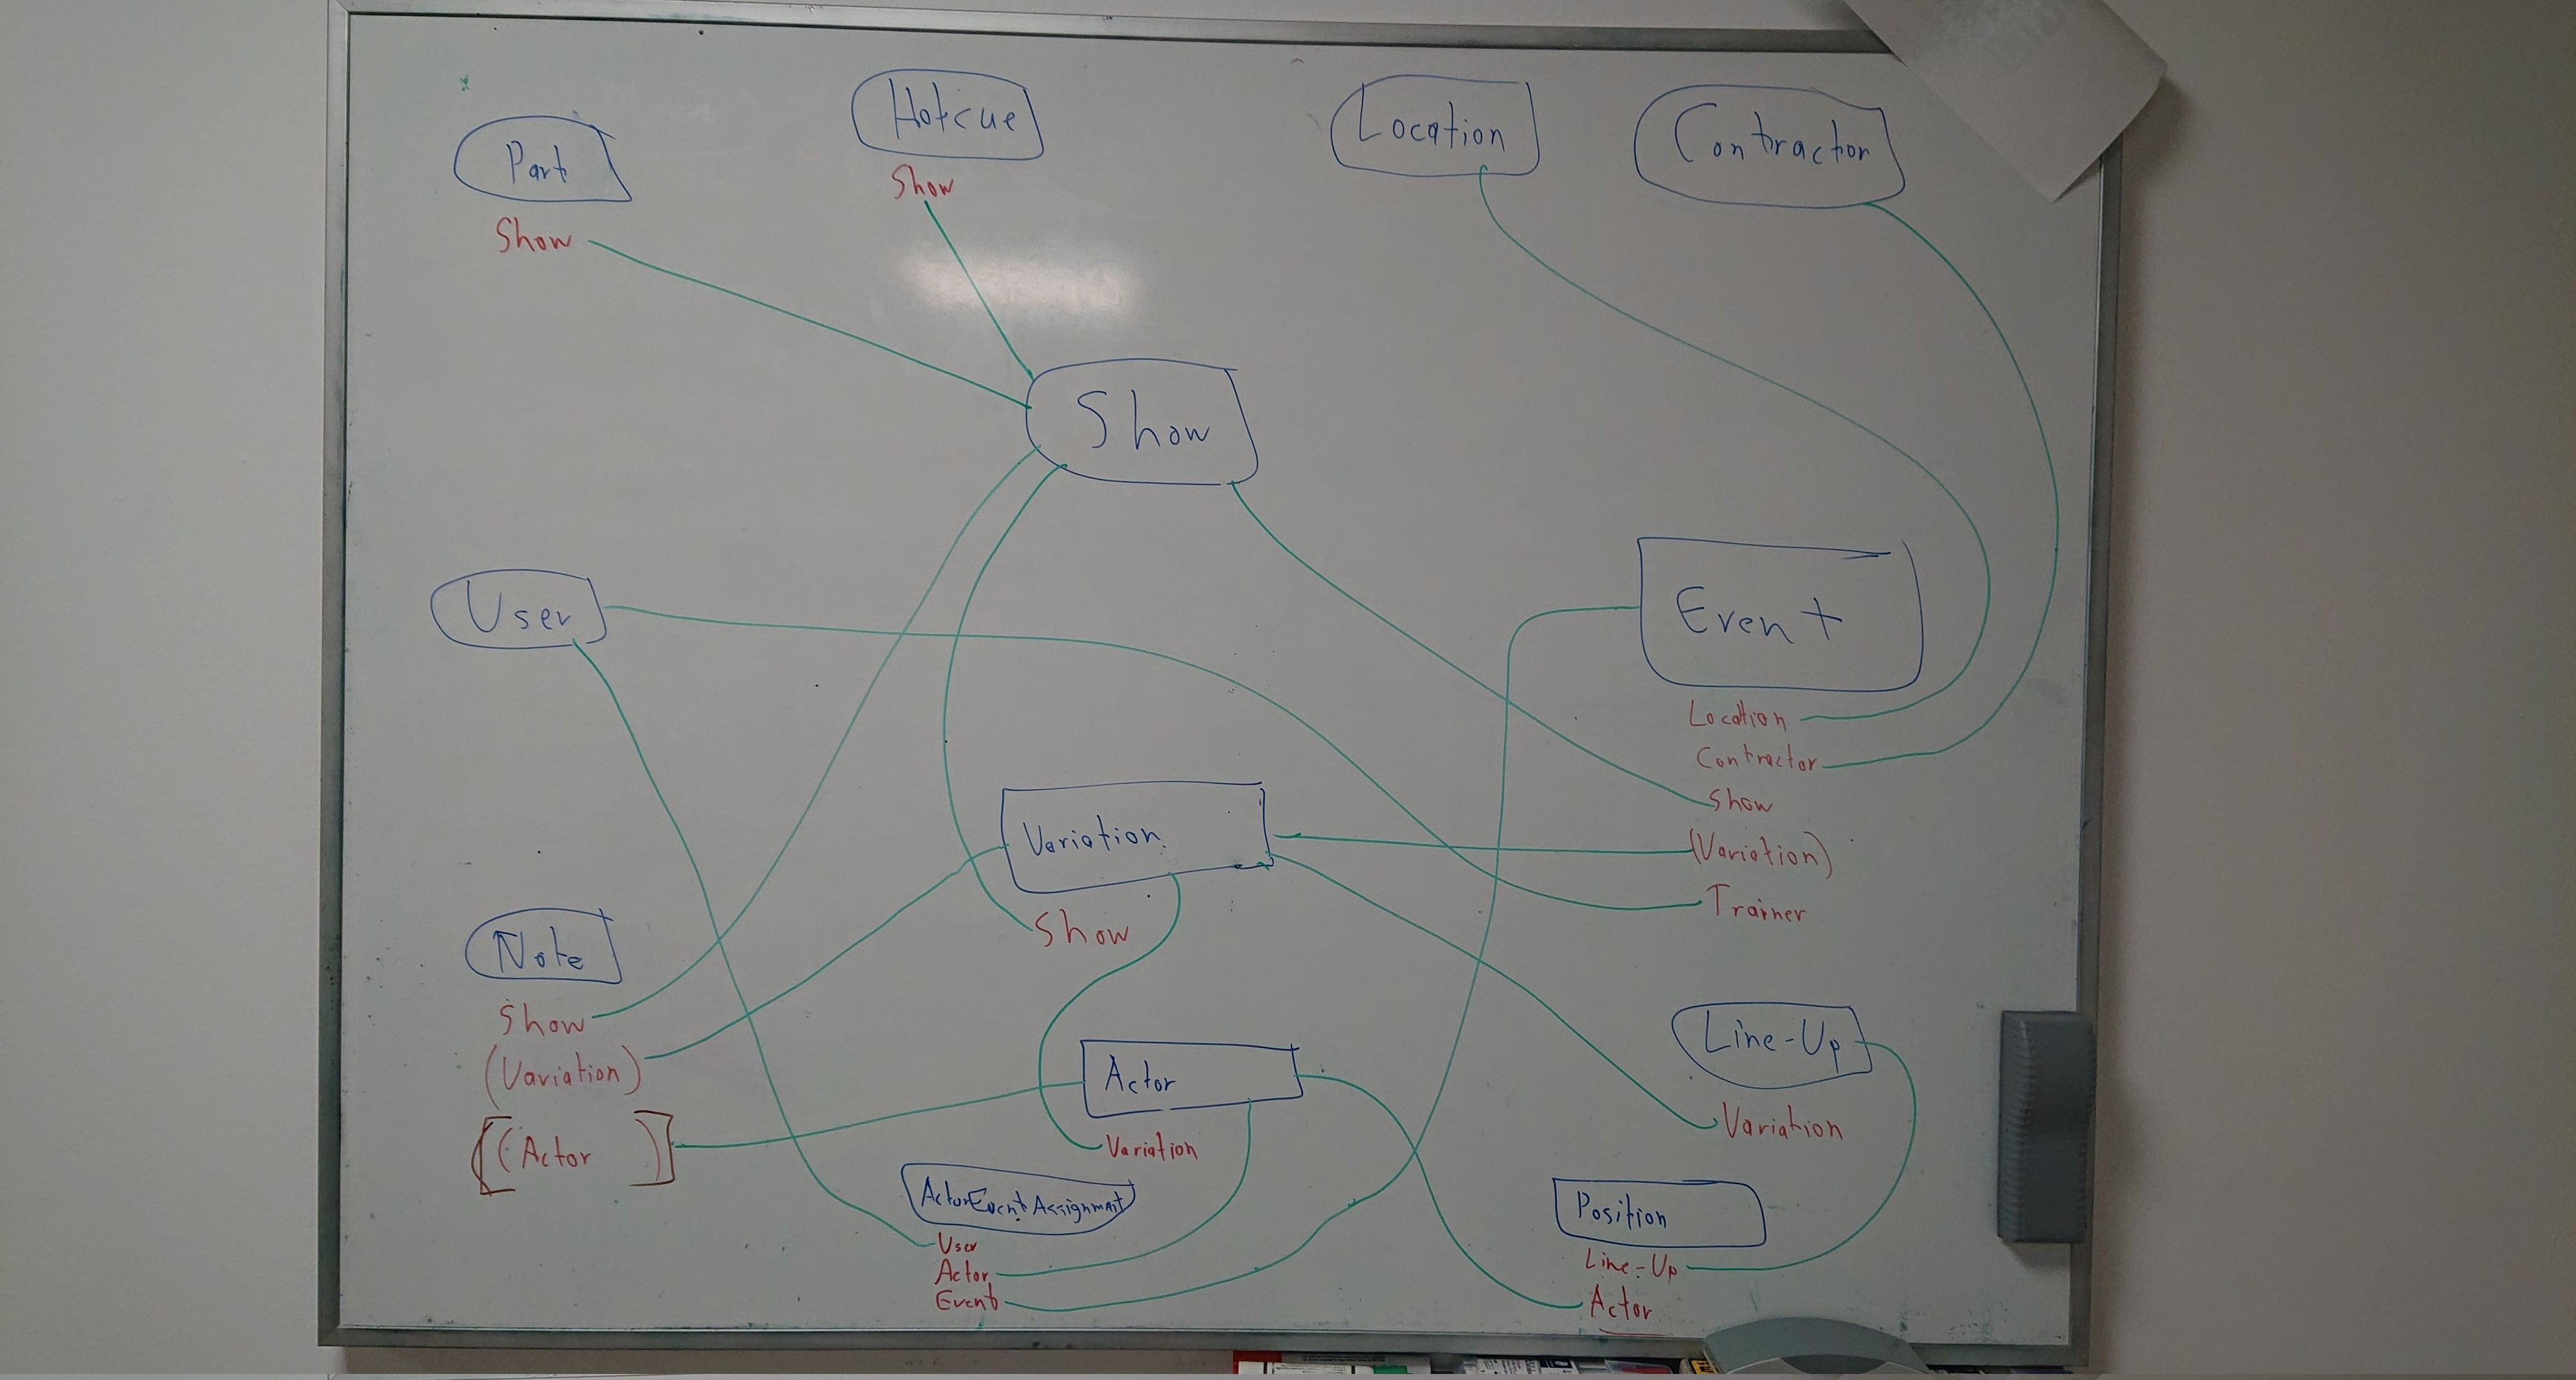 Hotcue
Location
Contractor
Part
Show
Show
Show
User
Event
Location
Contractor
Show
(Variation)
Trainer
Variation
Show
Note
Show
(Variation)
[(Actor)]
Actor
Variation
Line-Up
Variation
ActorEventAssignment
User
Actor
Event
Position
Line-Up
Actor